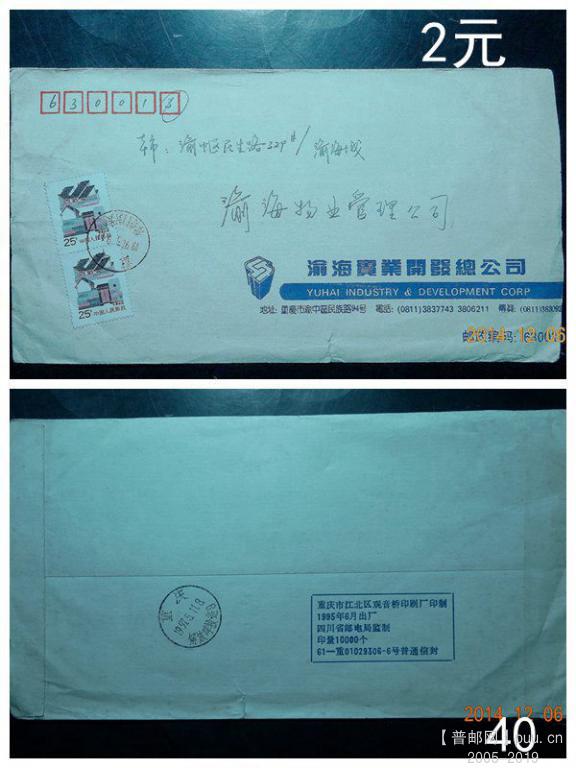 2元
6 3 0 0 1 3
本市：渝中区民生路329#/渝海城
渝海物业管理公司
25分 中国人民邮政
25分 中国人民邮政
渝海實業開發總公司
YUHAI INDUSTRY & DEVELOPMENT CORP
地址: 重慶市渝中區民族路94号 電話: (0811)3837743 3806211 傳真: (0811)38309
2014.12.06
邮政编码: 63001
重庆市江北区观音桥印刷厂印制
1995年6月出厂
四川省邮电局监制
印量10000个
61—重01029306-6号普通信封
重庆
2014.12.06
40
【 普邮网 】 puu.cn
2005-2019